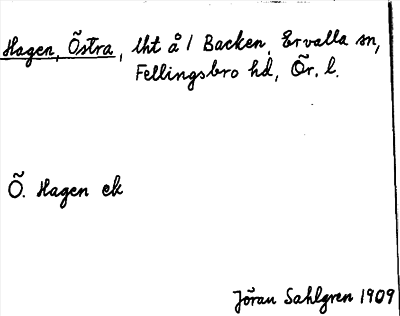 Hagen, Östra, lht å / Backen, Ervalla sn,
Fellingsbro hd, Ör. l.
Ö. Hagen ek
Jöran Sahlgren 1909